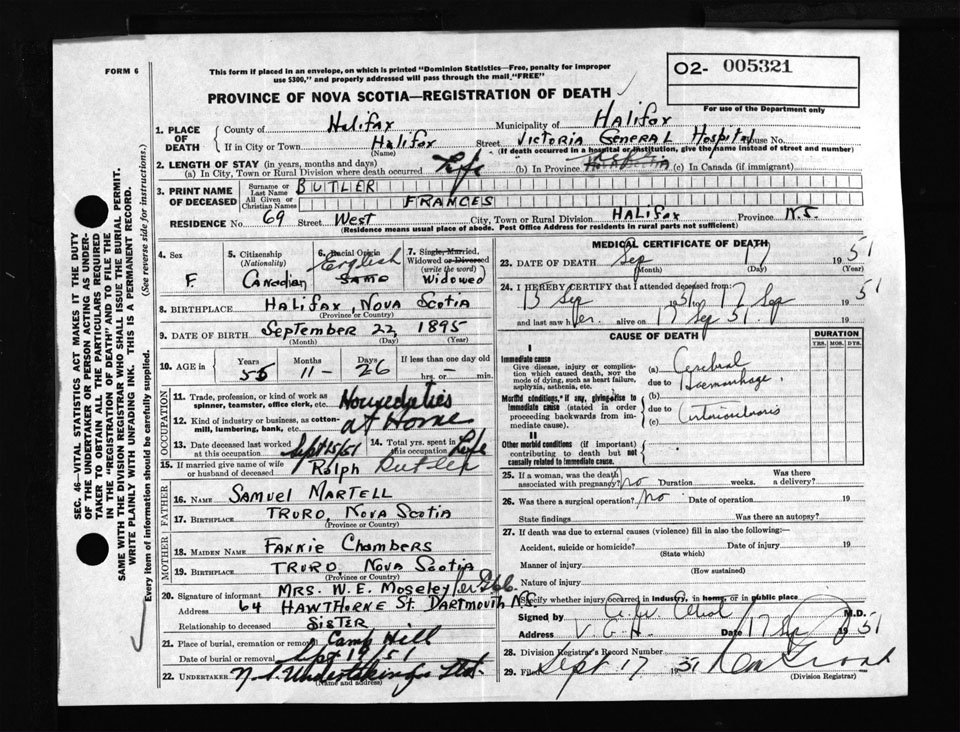 FORM 6
This form if placed in an envelope, on which is printed "Dominion Statistics—Free, penalty for improper
use $300," and properly addressed will pass through the mail "FREE"
O2- 005321
For use of the Department only
PROVINCE OF NOVA SCOTIA—REGISTRATION OF DEATH
1. PLACE OF DEATH
County of Halifax Municipality of Halifax
If in City or Town Halifax (Name) Street Victoria General Hospital House No.
(If death occurred in a hospital or institution, give the name instead of street and number)
2. LENGTH OF STAY (in years, months and days)
(a) In City, Town or Rural Division where death occurred Life (b) In Province (c) In Canada (if immigrant)
3. PRINT NAME OF DECEASED
Surname or Last Name BUTLER
All Given or Christian Names FRANCES
RESIDENCE No. 69 Street West City, Town or Rural Division HALIFAX Province N.S.
(Residence means usual place of abode. Post Office Address for residents in rural parts not sufficient)
4. Sex F.
5. Citizenship (Nationality) Canadian
6. Racial Origin English same
7. Single, Married, Widowed or Divorced (write the word) Widowed
8. BIRTHPLACE HALIFAX, NOVA SCOTIA
(Province or Country)
9. DATE OF BIRTH September 22, 1895
(Month) (Day) (Year)
10. AGE in Years 55 Months 11 Days 26 If less than one day old hrs. or min.
OCCUPATION
11. Trade, profession, or kind of work as spinner, teamster, office clerk, etc.
12. Kind of industry or business, as cotton-mill, lumbering, bank, etc. at Home
13. Date deceased last worked at this occupation Sept 15/51
14. Total yrs. spent in this occupation Life
15. If married give name of wife or husband of deceased Ralph Butler
FATHER
16. NAME SAMUEL MARTELL
17. BIRTHPLACE TRURO, NOVA SCOTIA
(Province or Country)
MOTHER
18. MAIDEN NAME FANNIE Chambers
19. BIRTHPLACE TRURO, NOVA SCOTIA
(Province or Country)
20. Signature of informant MRS. W. E. MOSELEY
Address 64 HAWTHORNE St. DARTMOUTH N.S.
Relationship to deceased SISTER
21. Place of burial, cremation or removal Camp Hill
Date of burial or removal Sept 19/51
22. UNDERTAKER N.S. Undertaking
(Name and address)
MEDICAL CERTIFICATE OF DEATH
23. DATE OF DEATH Sep 17 1951
(Month) (Day) (Year)
24. I HEREBY CERTIFY that I attended deceased from:
15 Sep 1951 to 17 Sep 1951
and last saw her alive on 17 Sep 51.
CAUSE OF DEATH
DURATION
YRS. MOS. DYS.
I
Immediate cause
Give disease, injury or complication which caused death, not the mode of dying, such as heart failure, asphyxia, asthenia, etc.
(a) Cerebral
due to Haemorrhage.
Morbid conditions, if any, giving rise to immediate cause (stated in order proceeding backwards from immediate cause).
(b)
due to
(c)
II
Other morbid conditions (if important) contributing to death but not causally related to immediate cause.
25. If a woman, was the death associated with pregnancy? no Duration weeks. Was there a delivery?
26. Was there a surgical operation? no Date of operation 19
State findings Was there an autopsy?
27. If death was due to external causes (violence) fill in also the following:—
Accident, suicide or homicide? (State which) Date of injury 19
Manner of injury
(How sustained)
Nature of injury
Specify whether injury occurred in industry, in home, or in public place
Signed by M.D.
Address V.G.H. Date 17 Sep 1951
28. Division Registrar's Record Number
29. Filed Sept. 17 1951
(Division Registrar)
SEC. 46—VITAL STATISTICS ACT MAKES IT THE DUTY
OF THE UNDERTAKER OR PERSON ACTING AS UNDER-
TAKER TO OBTAIN ALL THE PARTICULARS REQUIRED
IN THE "REGISTRATION OF DEATH" AND TO FILE THE
SAME WITH THE DIVISION REGISTRAR WHO SHALL ISSUE THE BURIAL PERMIT.
WRITE PLAINLY WITH UNFADING INK. THIS IS A PERMANENT RECORD.
Every item of information should be carefully supplied. (See reverse side for instructions.)